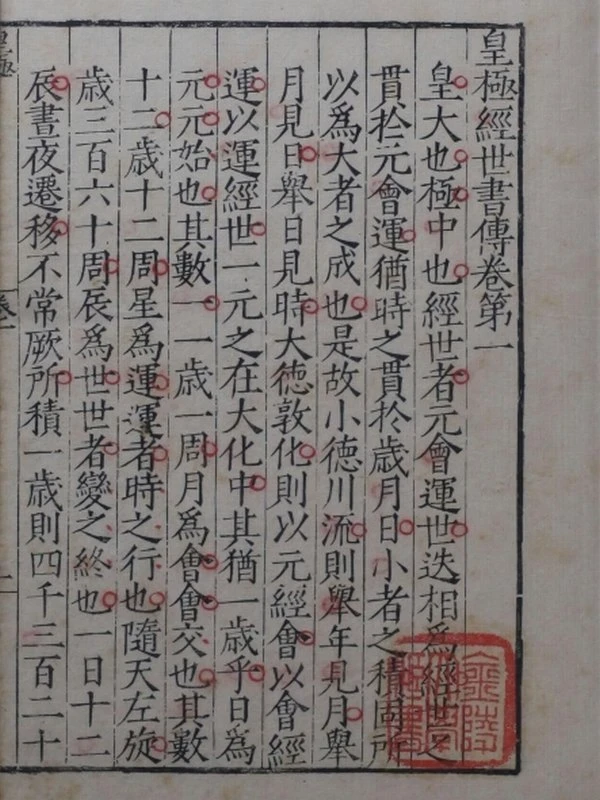 皇極經世書傳卷第一
皇大也極中也經世者元會運世迭相爲經世之
貫扵元會運猶時之貫扵歳月日小者之積固所
以爲大者之成也是故小德川流則舉年見月舉
月見日舉日見時大德敦化則以元經會以會經
運以運經世一元之在大化中其猶一歳乎日爲
元元始也其數一一歳一周月爲會會交也其數
十二歳十二周星爲運運者時之行也隨天左旋
歳三百六十周辰爲世世者變之終也一日十二
辰晝夜遷移不常厥所積一歳則四千三百二十